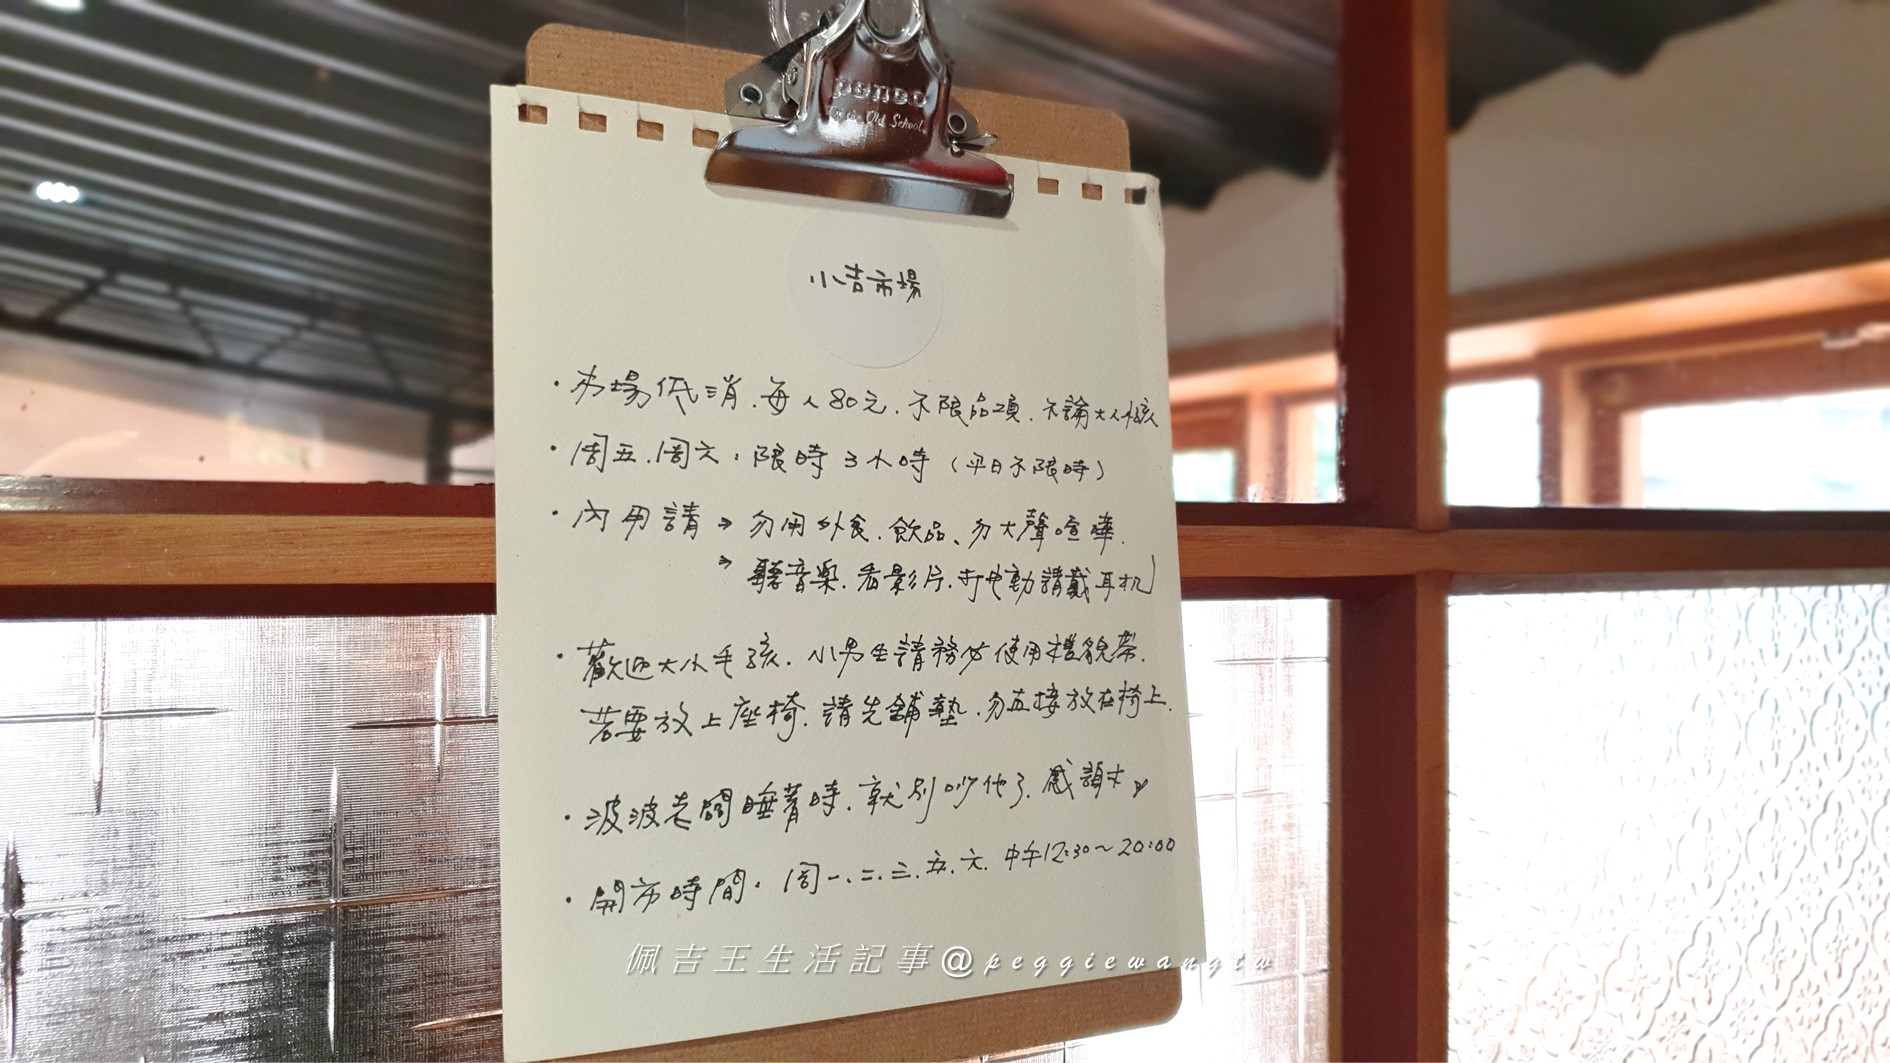 penco
Old School
小吉市場
・市場低消.每人80元.不限品項.不論大人小孩
・周五.周六:限時3小時(平日不限時)
・內用請→勿用外食.飲品、勿大聲喧嘩.
→聽音樂.看影片.打電動請戴耳机
・歡迎大小毛孩.小男生請務必使用禮貌帶.
若要放上座椅.請先鋪墊.勿直接放在椅上.
・波波老闆睡著時.就別吵他了.感謝大
・開市時間.周一.二.三.五.六.中午12:30～20:00
佩吉王生活記事@peggiewangtw